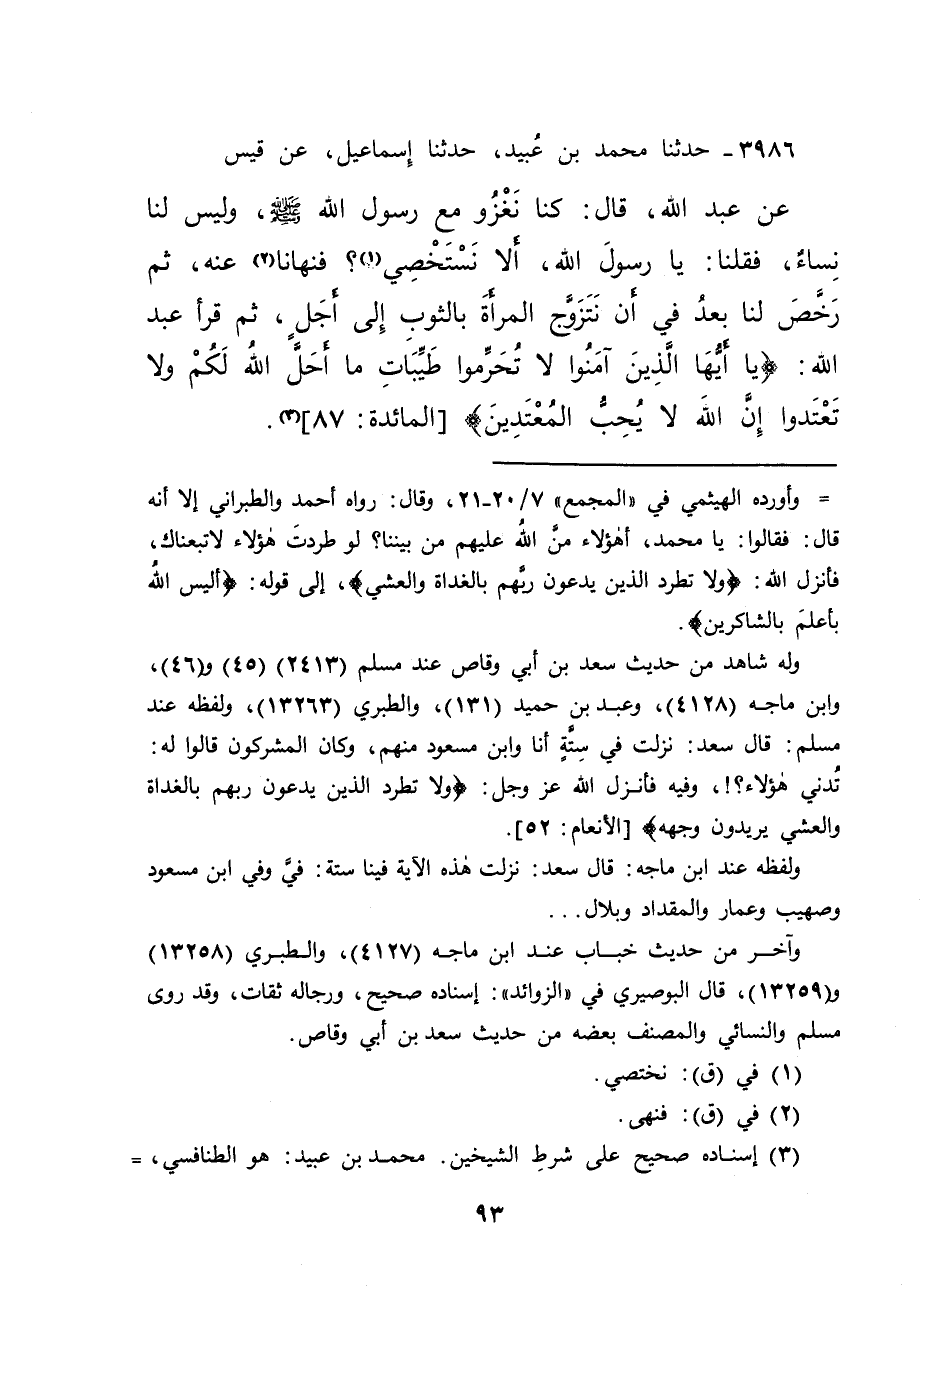 ٣٩٨٦ـ حدثنا محمد بن عُبيد، حدثنا إسماعيل، عن قيس
عن عبد الله، قال: كنا نَغْزُو مع رسول الله ﷺ، وليس لنا
نِساءٌ، فقلنا: يا رسولَ الله، أَلا نَسْتَخْصِي(١)؟ فنهانا(٢) عنه، ثم
رَخَّصَ لنا بعدُ في أَن نَتَزَوَّج المرأَةَ بالثوبِ إِلى أَجَلٍ، ثم قرأ عبد
الله: ﴿يا أَيُّهَا الَّذِينَ آمَنُوا لا تُحَرِّموا طَيِّبَاتِ ما أَحَلَّ اللهُ لَكُمْ ولا
تَعْتَدوا إِنَّ اللهَ لا يُحِبُّ المُعْتَدِينَ﴾ [المائدة: ٨٧](٣).
= وأورده الهيثمي في «المجمع» ٢٠/٧ـ٢١، وقال: رواه أحمد والطبراني إلا أنه
قال: فقالوا: يا محمد، أهٰؤلاء منَّ اللهُ عليهم من بيننا؟ لو طردتَ هٰؤلاء لاتبعناك،
فأنزل الله: ﴿ولا تطرد الذين يدعون ربَّهم بالغداة والعشي﴾، إلى قوله: ﴿أليس اللهُ
بأعلمَ بالشاكرين﴾.
وله شاهد من حديث سعد بن أبي وقاص عند مسلم (٢٤١٣) (٤٥) و(٤٦)،
وابن ماجه (٤١٢٨)، وعبد بن حميد (١٣١)، والطبري (١٣٢٦٣)، ولفظه عند
مسلم: قال سعد: نزلت في سِتَّةٍ أنا وابن مسعود منهم، وكان المشركون قالوا له:
تُدني هٰؤلاء؟!، وفيه فأنزل الله عز وجل: ﴿ولا تطرد الذين يدعون ربهم بالغداة
والعشي يريدون وجهه﴾ [الأنعام: ٥٢].
ولفظه عند ابن ماجه: قال سعد: نزلت هٰذه الآية فينا ستة: فيَّ وفي ابن مسعود
وصهيب وعمار والمقداد وبلال...
وآخر من حديث خباب عند ابن ماجه (٤١٢٧)، والطبري (١٣٢٥٨)
و(١٣٢٥٩)، قال البوصيري في «الزوائد»: إسناده صحيح، ورجاله ثقات، وقد روى
مسلم والنسائي والمصنف بعضه من حديث سعد بن أبي وقاص.
(١) في (ق): نختصي.
(٢) في (ق): فنهى.
(٣) إسناده صحيح على شرطِ الشيخين. محمد بن عبيد: هو الطنافسي، =
٩٣